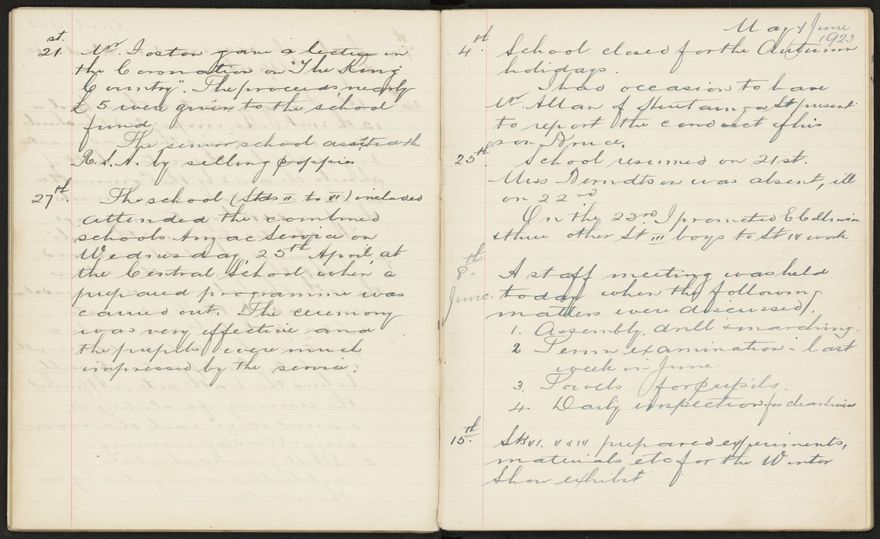 21st. Mr. Foston gave a lecture in
the Coronation on "The King
Country". The proceeds, nearly
£5 were given to the school
fund.
The senior school assisted the
R.S.A. by selling poppies
27th. The school (Stds II to VI) included
attended the combined
schools Anzac Service on
Wednesday, 25th April, at
the Central School when a
prepared programme was
carried out. The ceremony
was very effective and
the pupils were much
impressed by the service.
May & June
1923
4th. School closed for the Autumn
holidays.
I had occasion to have
Mr. Allan of present
to report the conduct of his
son Bruce.
25th School resumed on 21st.
Miss Berndtson was absent, ill
on 22nd
On the 23rd I promoted E
& three other St III boys to St IV work
8th June. A staff meeting was held
today when the following
matters were discussed.
1. Assembly, drill & marching.
2 Term examination - last
week in June.
3. Towels for pupils.
4. Daily inspection for cleanliness
15th. Stds VI. V & IV prepared experiments,
materials etc for the Winter
Show exhibit